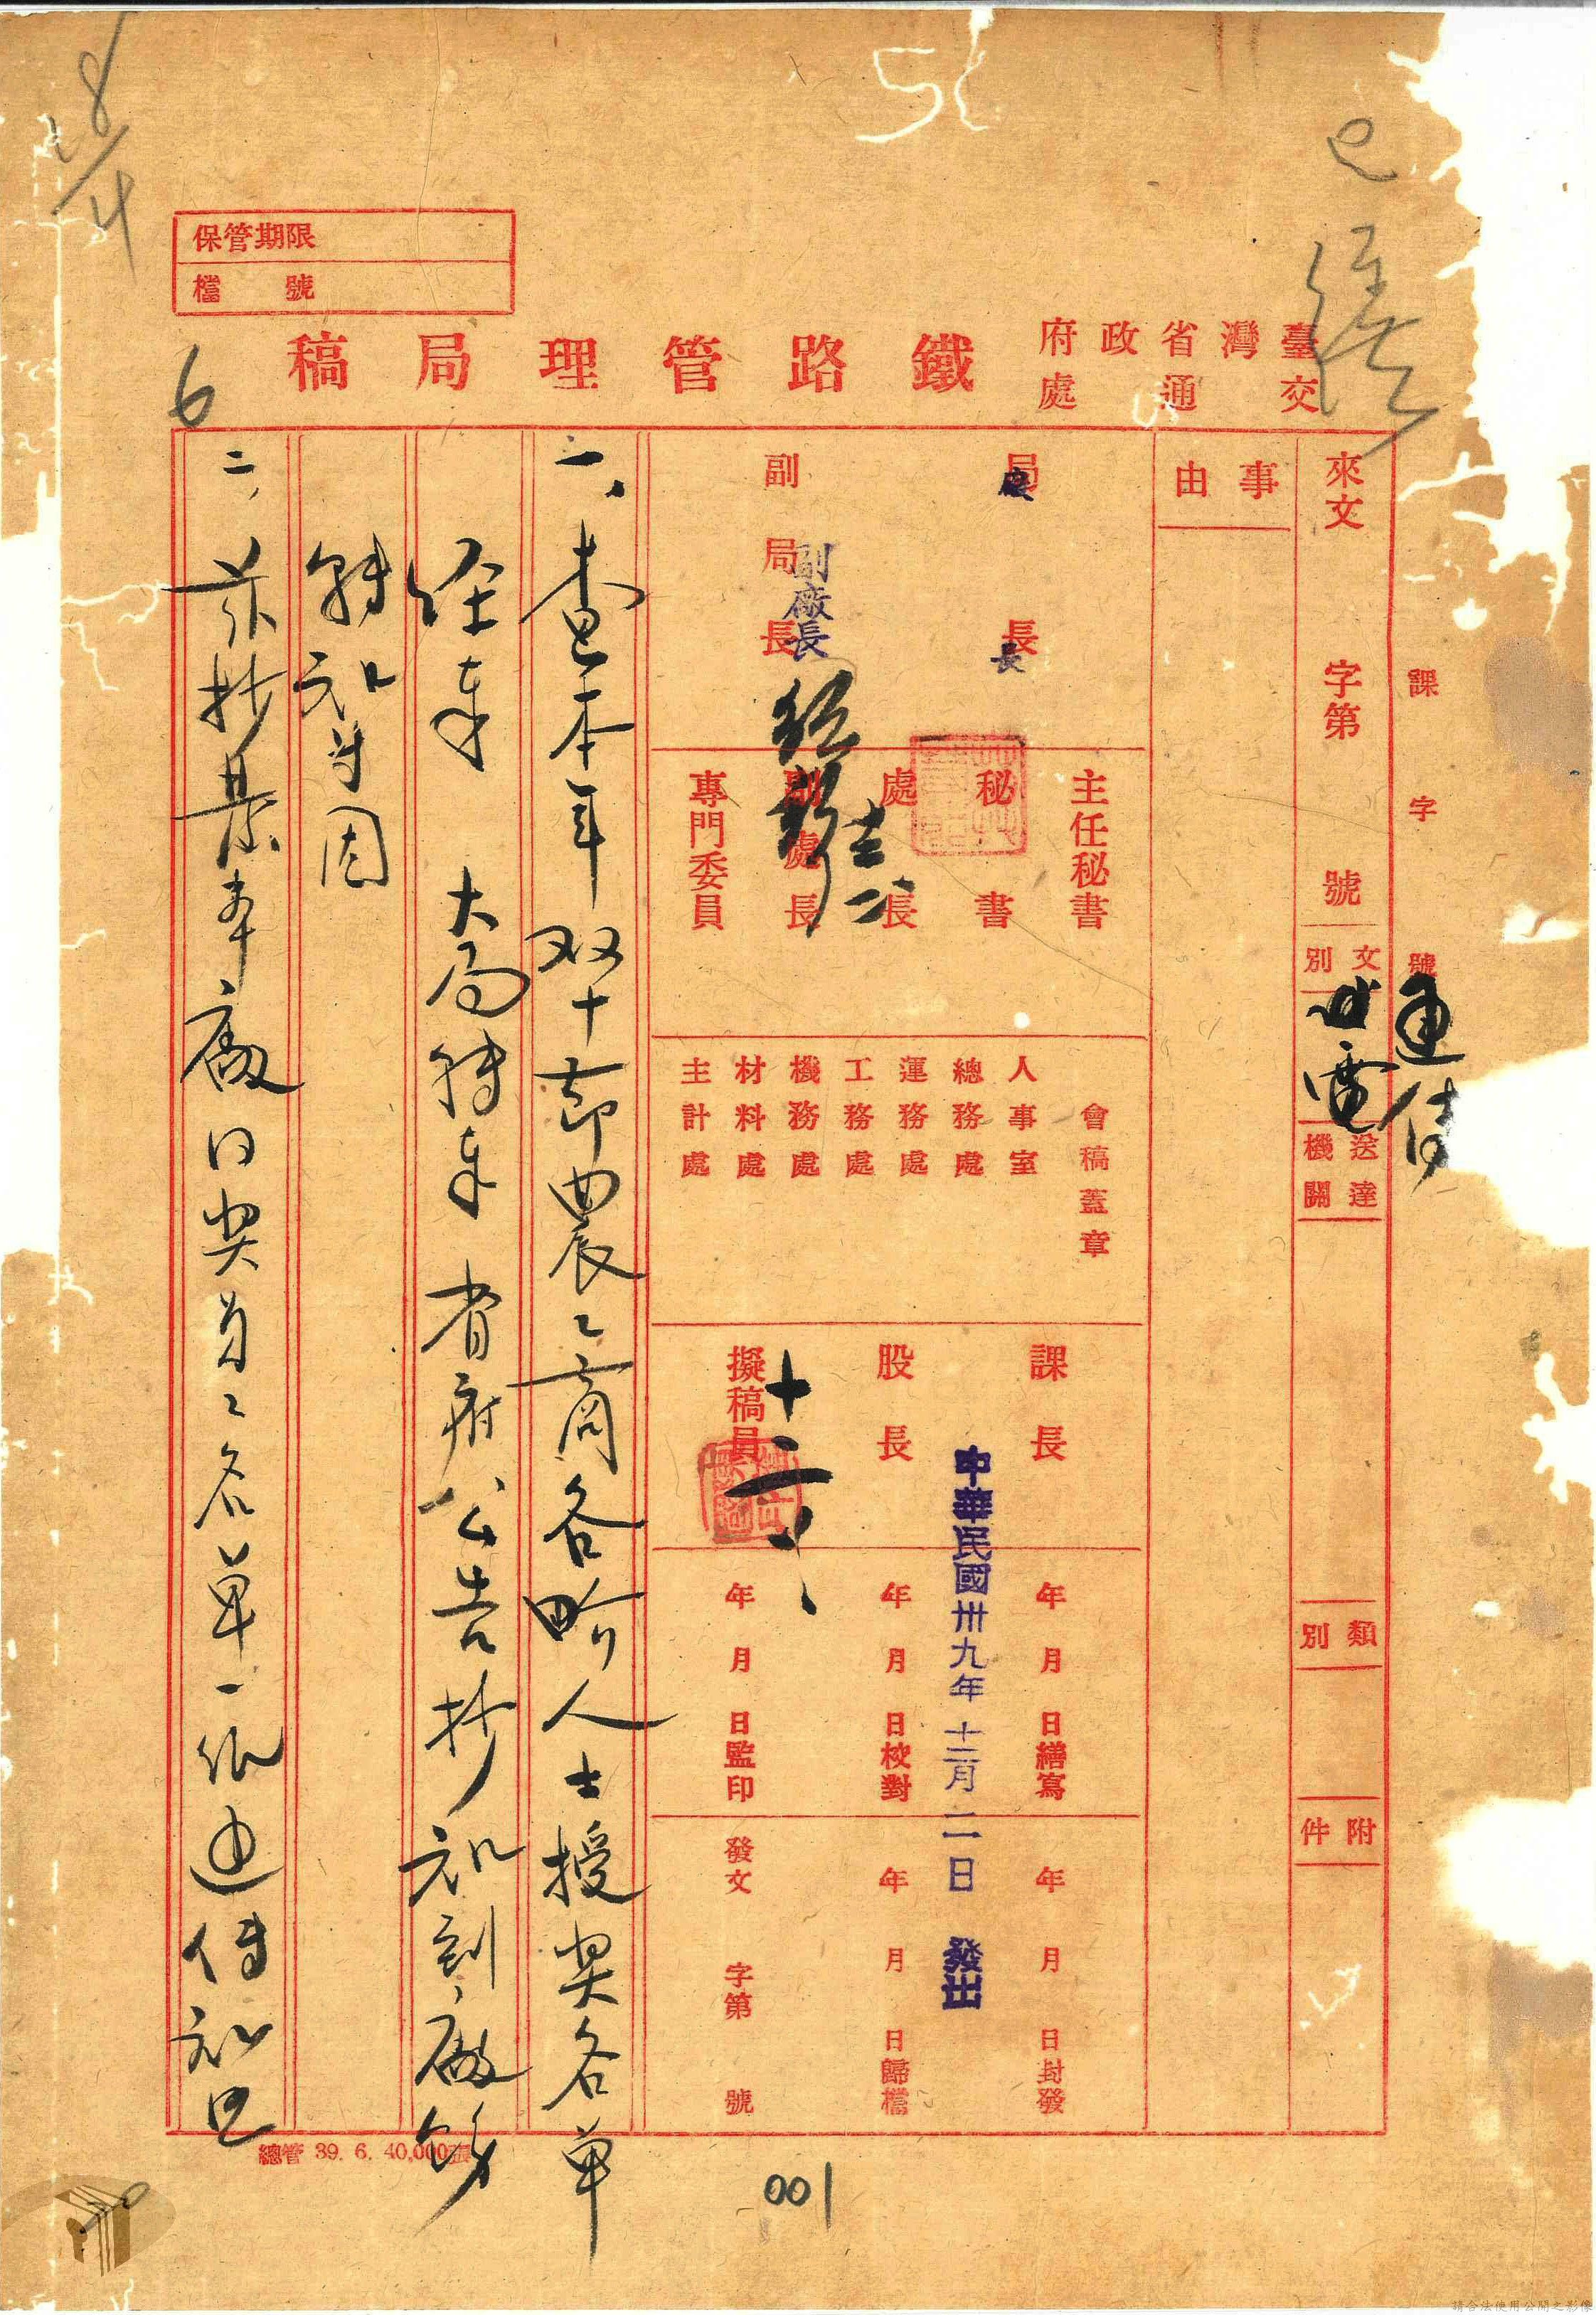 8/4
已繕
保管期限
檔號
臺灣省政府交通處
鐵路管理局稿
6
課字號
通傳
來文字第號
文別
代電
送達機關
類別
附件
事由
局長
廠長
副局長
副廠長
主任秘書
秘書
處長
副處長
專門委員
會稿蓋章
人事室
總務處
運務處
工務處
機務處
材料處
主計處
課長
股長
擬稿員
十二、一、
年月日繕寫
年月日校對
年月日監印
年月日封發
年月日歸檔
發文字第號
中華民國卅九年十二月二日發出
一、查本年双十節農工商各界人士授奬名單
經奉大局轉奉省府公告抄知到廠飭
轉知等因
二、茲抄集本廠以奬員工名單一紙通傳知照
總管 39. 6. 40,000張
001
請合法使用公開之影像